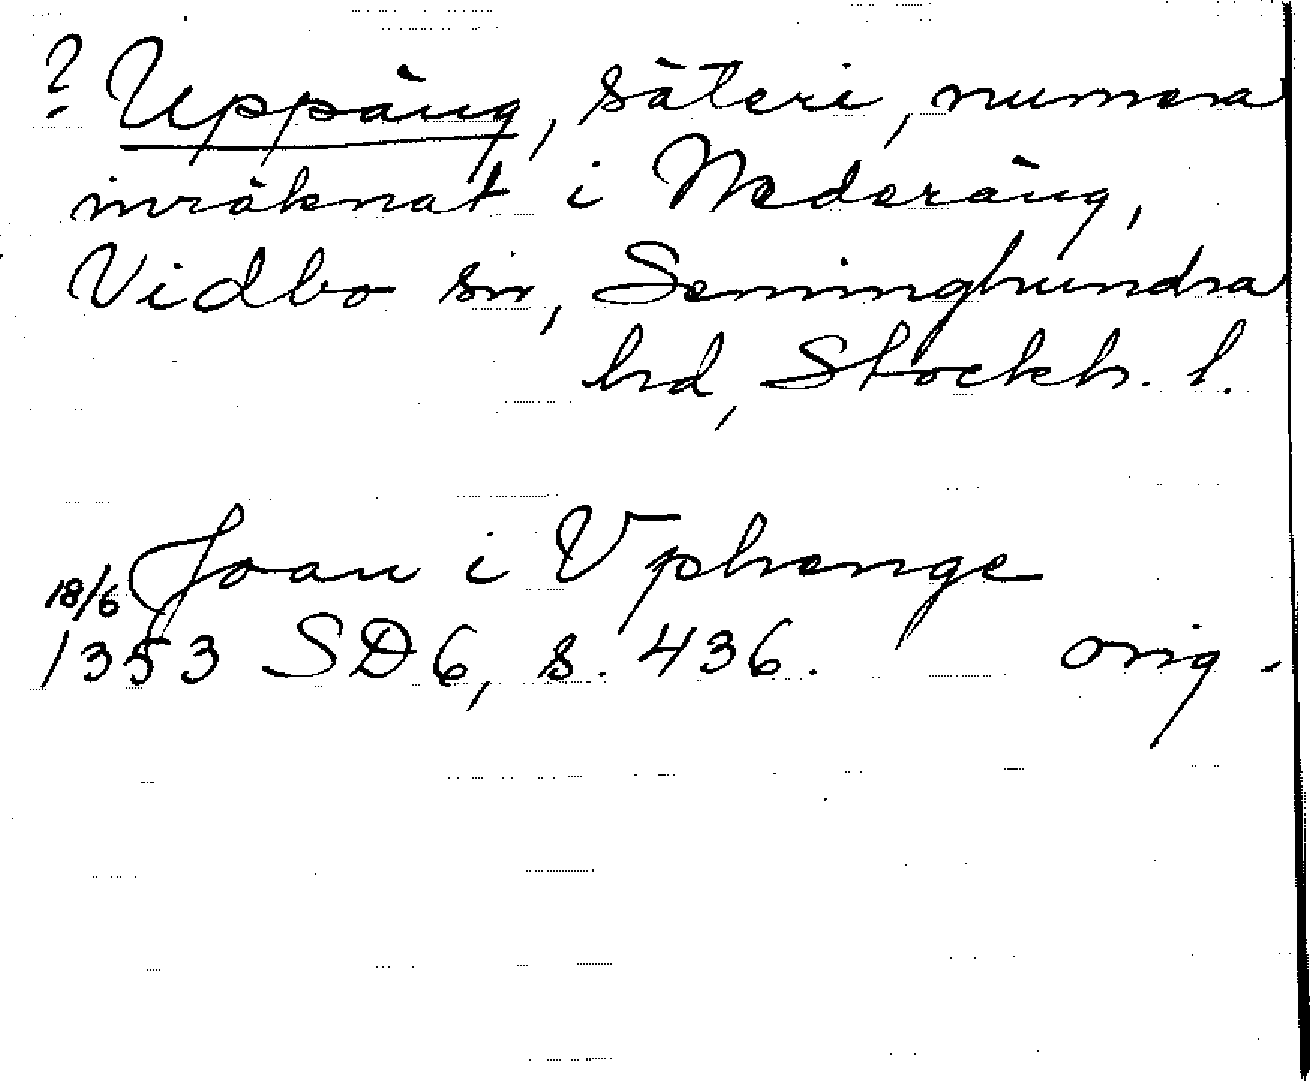 ? Uppäng, säteri, numera
inräknat i Nederäng,
Vidbo sn, Seminghundra
hd, Stockh. l.
18/6 Joan i Vphenge
1353 SD6, s. 436. orig.